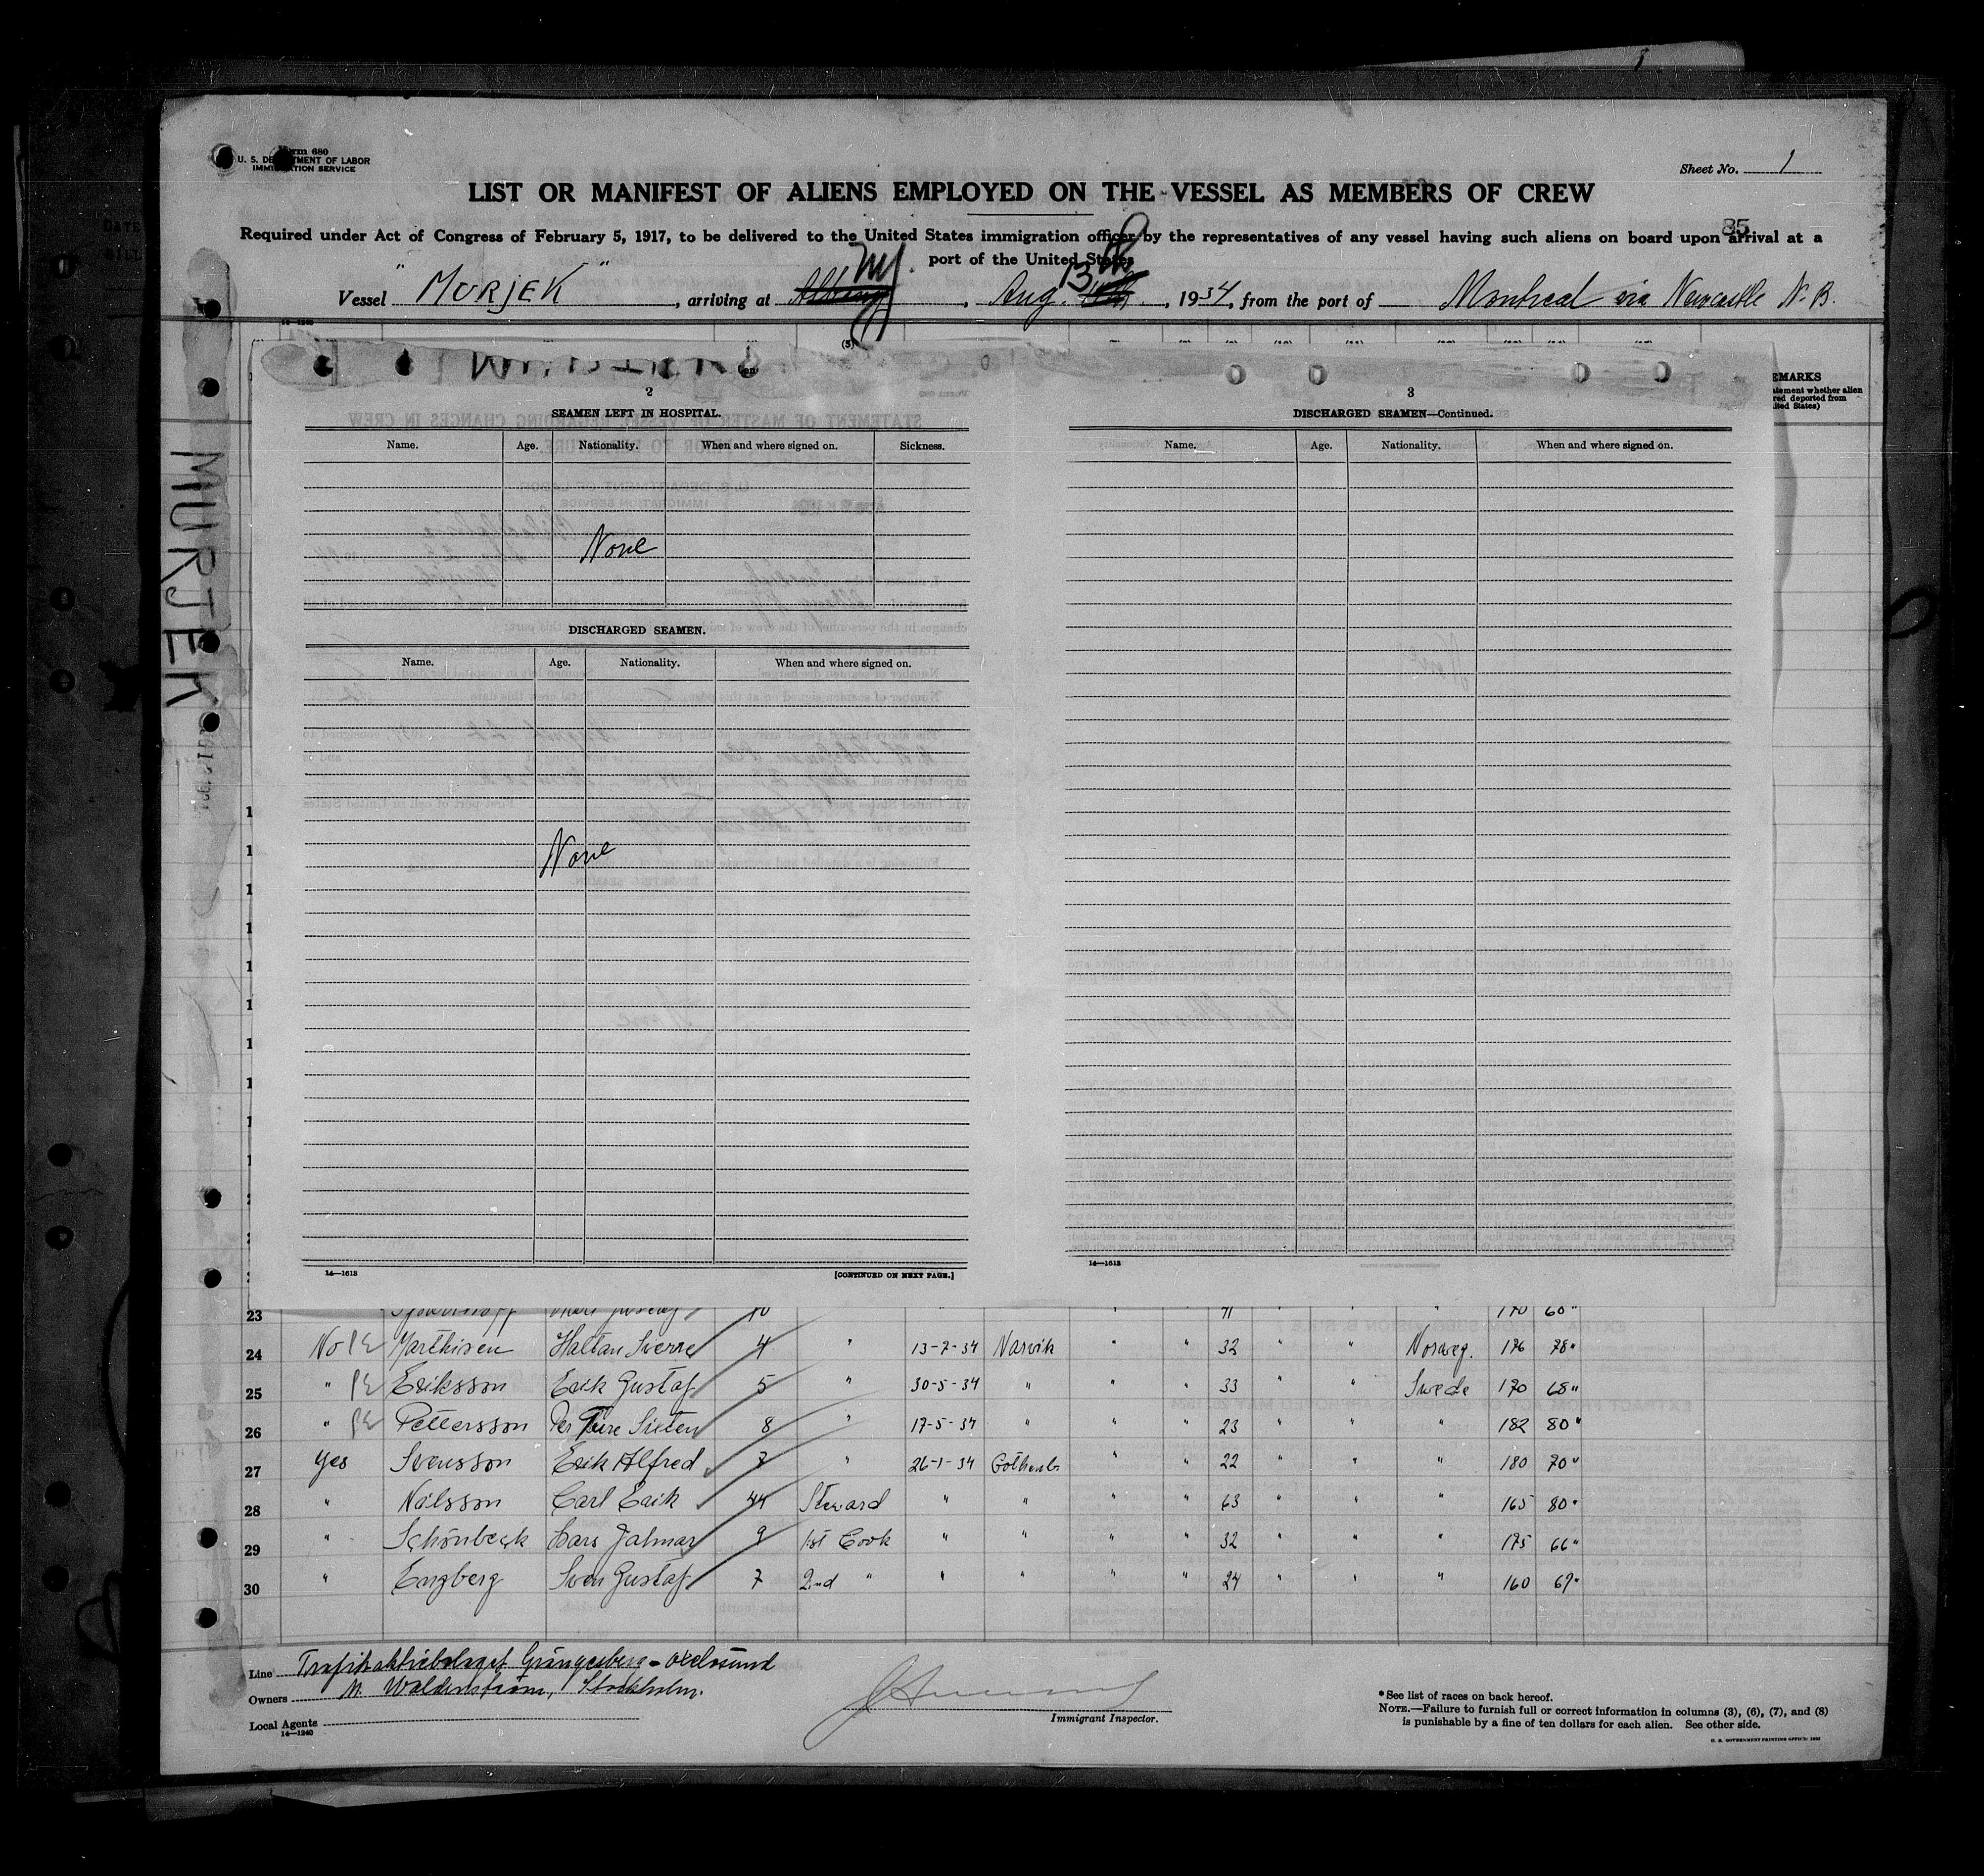 Form 680
U. S. DEPARTMENT OF LABOR
IMMIGRATION SERVICE
Sheet No. 1
LIST OR MANIFEST OF ALIENS EMPLOYED ON THE VESSEL AS MEMBERS OF CREW
85
Required under Act of Congress of February 5, 1917, to be delivered to the United States immigration officer by the representatives of any vessel having such aliens on board upon arrival at a
port of the United States
Vessel "MURJEK", arriving at Albany, Aug. 13, 1934, from the port of Montreal via Newcastle N.B.
(5)
EMARKS
atement whether alien
red deported from
ited States)
MURJEK
2
SEAMEN LEFT IN HOSPITAL.
Name. Age. Nationality. When and where signed on. Sickness.
None
DISCHARGED SEAMEN.
Name. Age. Nationality. When and where signed on.
None
14—1613
[CONTINUED ON NEXT PAGE.]
3
DISCHARGED SEAMEN—Continued.
Name. Age. Nationality. When and where signed on.
14—1613
23 10 41 " 170 60"
24 No PE Marthisen Haltan Sverre 4 " 13-7-34 Narvik " " 32 " " Norweg. 176 78"
25 " PE Eriksson Erik Gustaf 5 " 30-5-34 " " " 33 " " Swede 170 68"
26 " PE Pettersson Per Ture Sixten 8 " 17-5-34 " " " 23 " " " 182 80"
27 Yes Svensson Erik Alfred 7 " 26-1-34 Gothenb. " " 22 " " " 180 70"
28 " Nilsson Carl Erik 44 Steward " " " " 63 " " " 165 80"
29 " Schönbeck Lars Jalmar 9 1st Cook " " " " 32 " " " 175 66"
30 " Engberg Sven Gustaf 7 2nd " " " " " 24 " " " 160 69"
Line Trafikaktiebolaget Grängesberg-Oxelösund
Owners M. Waldenström, Stockholm.
Local Agents
14—1240
Immigrant Inspector.
* See list of races on back hereof.
NOTE.—Failure to furnish full or correct information in columns (3), (6), (7), and (8)
is punishable by a fine of ten dollars for each alien. See other side.